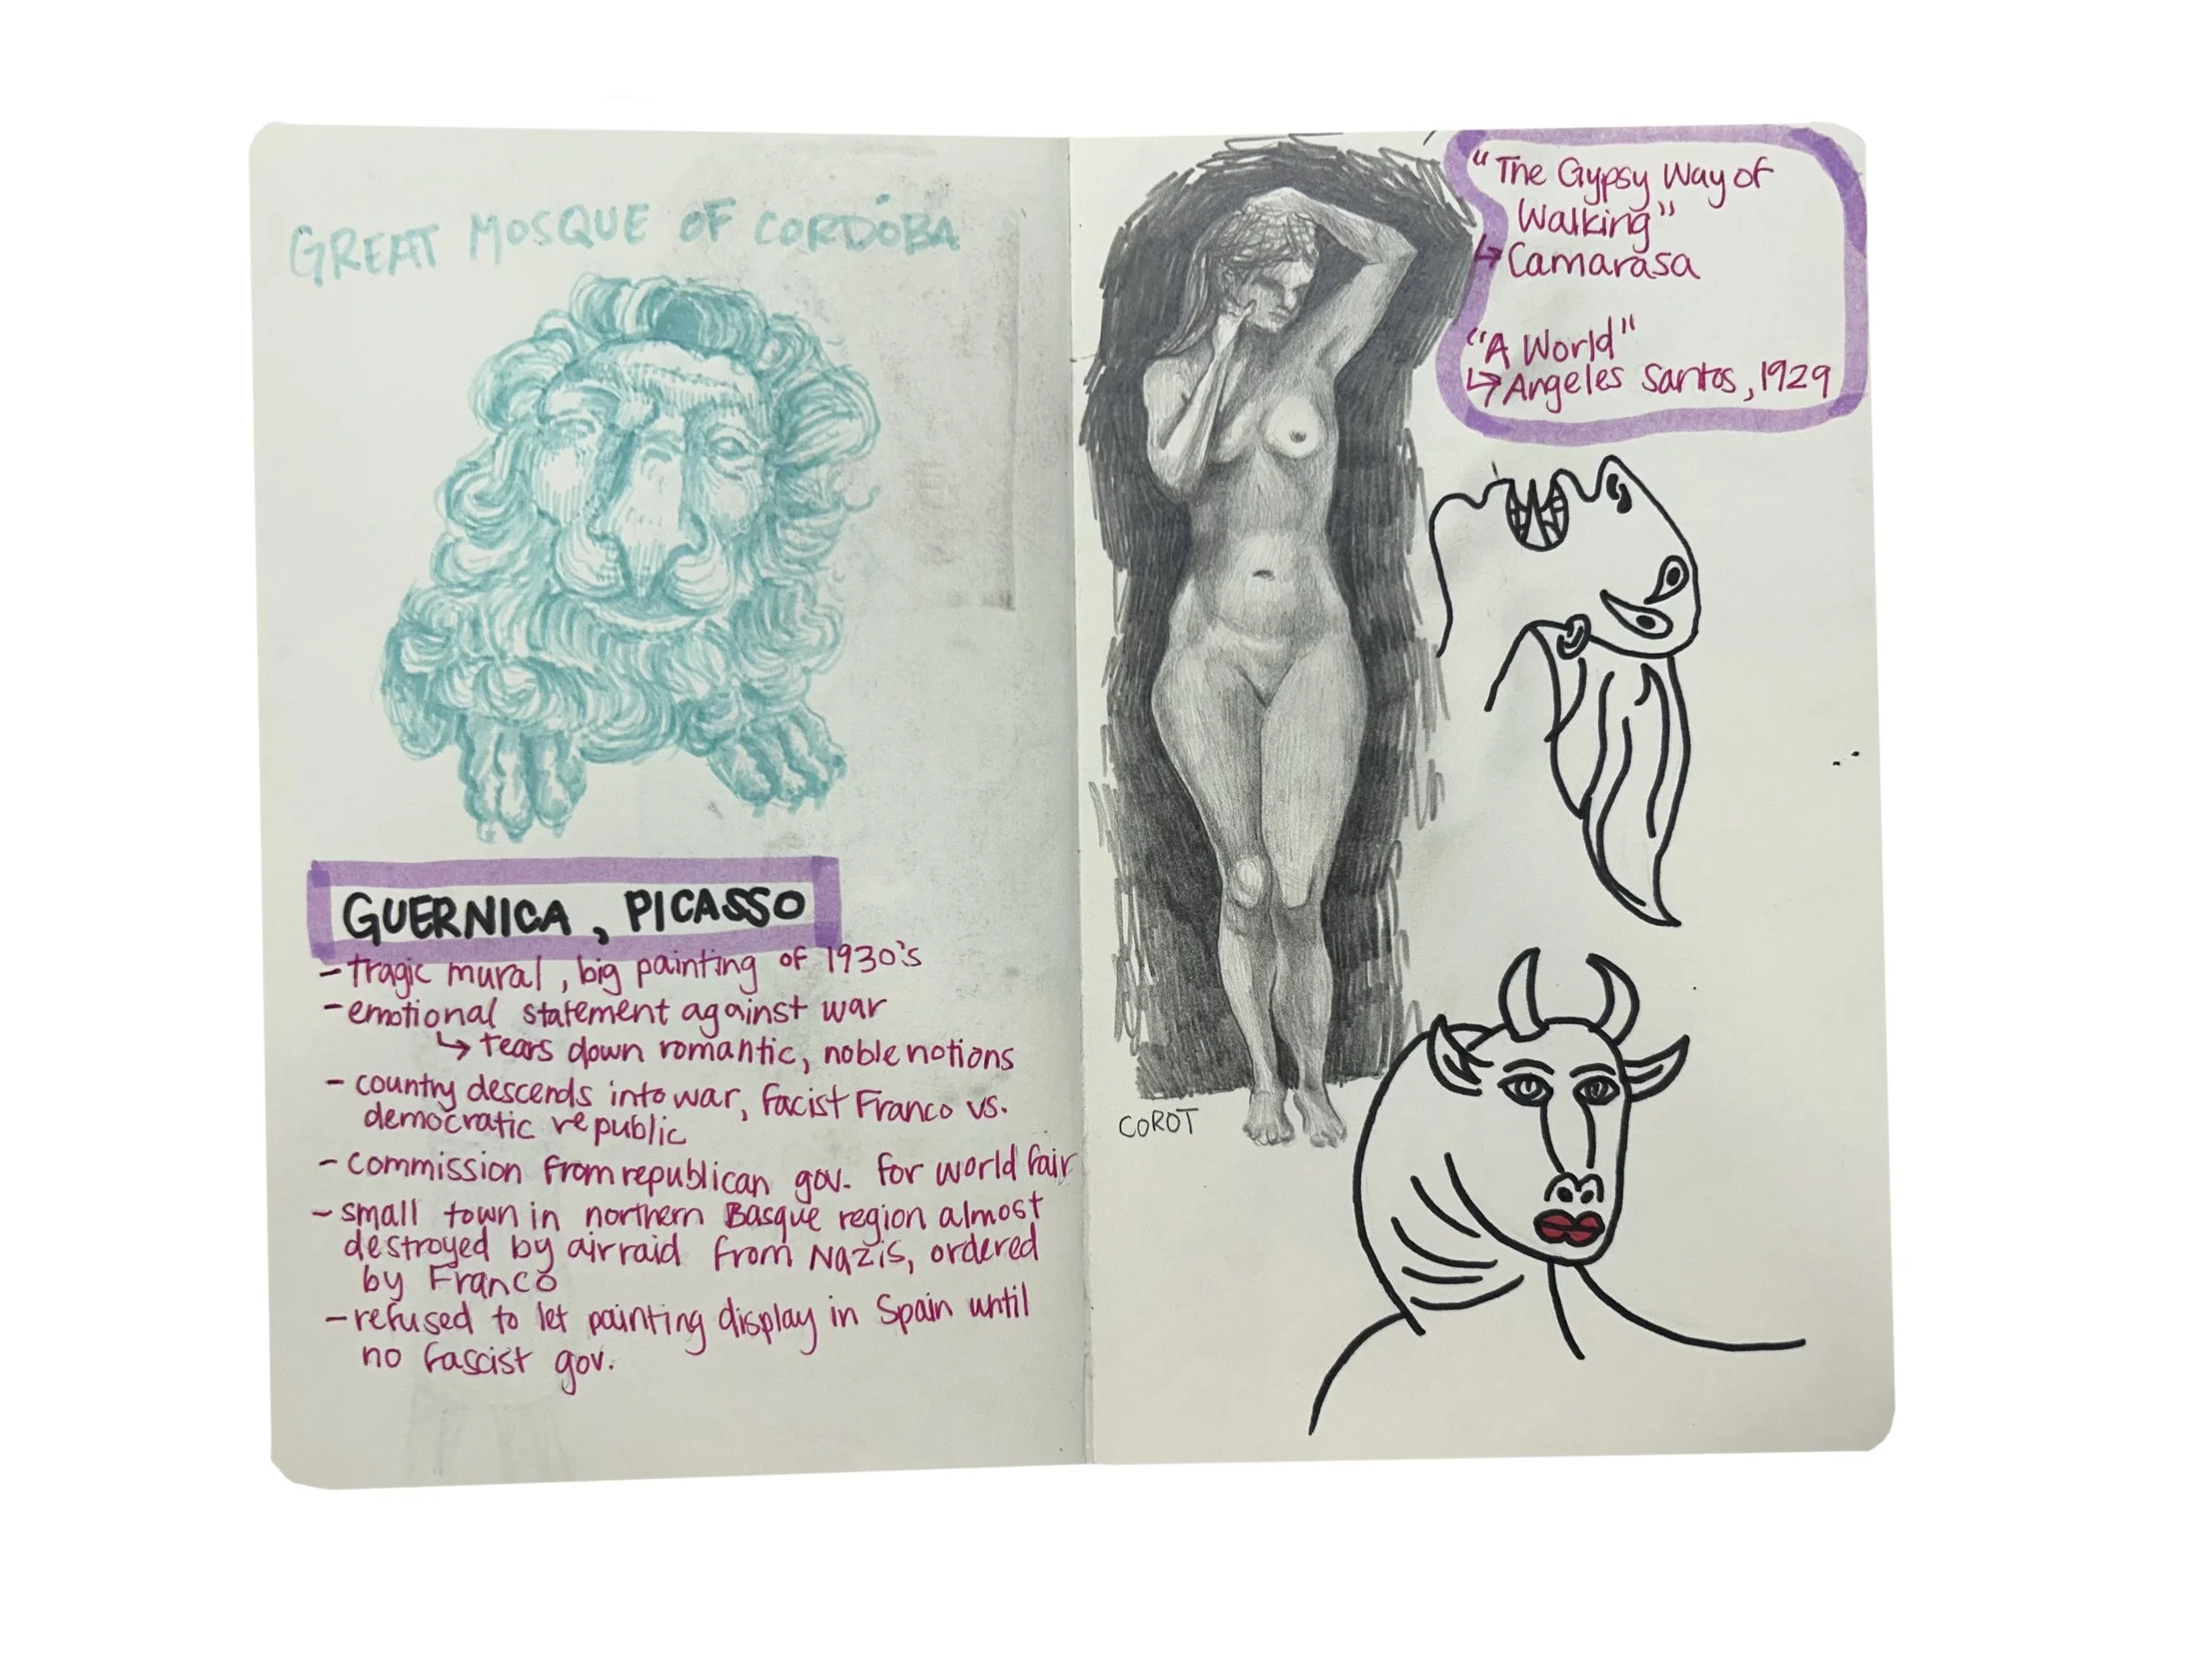 GREAT MOSQUE OF CORDOBA
GUERNICA, PICASSO
- tragic mural, big painting of 1930's
- emotional statement against war
↳ tears down romantic, noble notions
- country descends into war, facist Franco vs.
democratic republic
- commission from republican gov. for world fair
- small town in northern Basque region almost
destroyed by airraid from Nazis, ordered
by Franco
- refused to let painting display in Spain until
no fascist gov.
"The Gypsy Way of
Walking"
↳ Camarasa
"A World"
↳ Angeles Santos, 1929
COROT